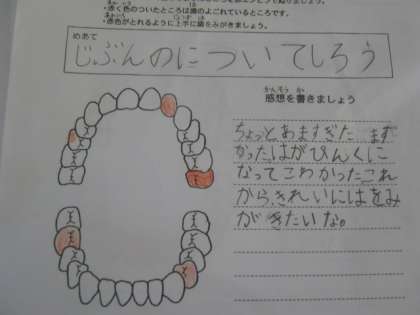 ・赤く色のついたところは歯のよごれているところです。
・赤色がとれるように上手に歯をみがきましょう。
めあて
じぶんのについてしろう
かんそう か
感想を書きましょう
ちょっとあますぎた まず
かった。はがぴんくに
なってこわかったこれ
から、きれいにはをみ
がきたいな。